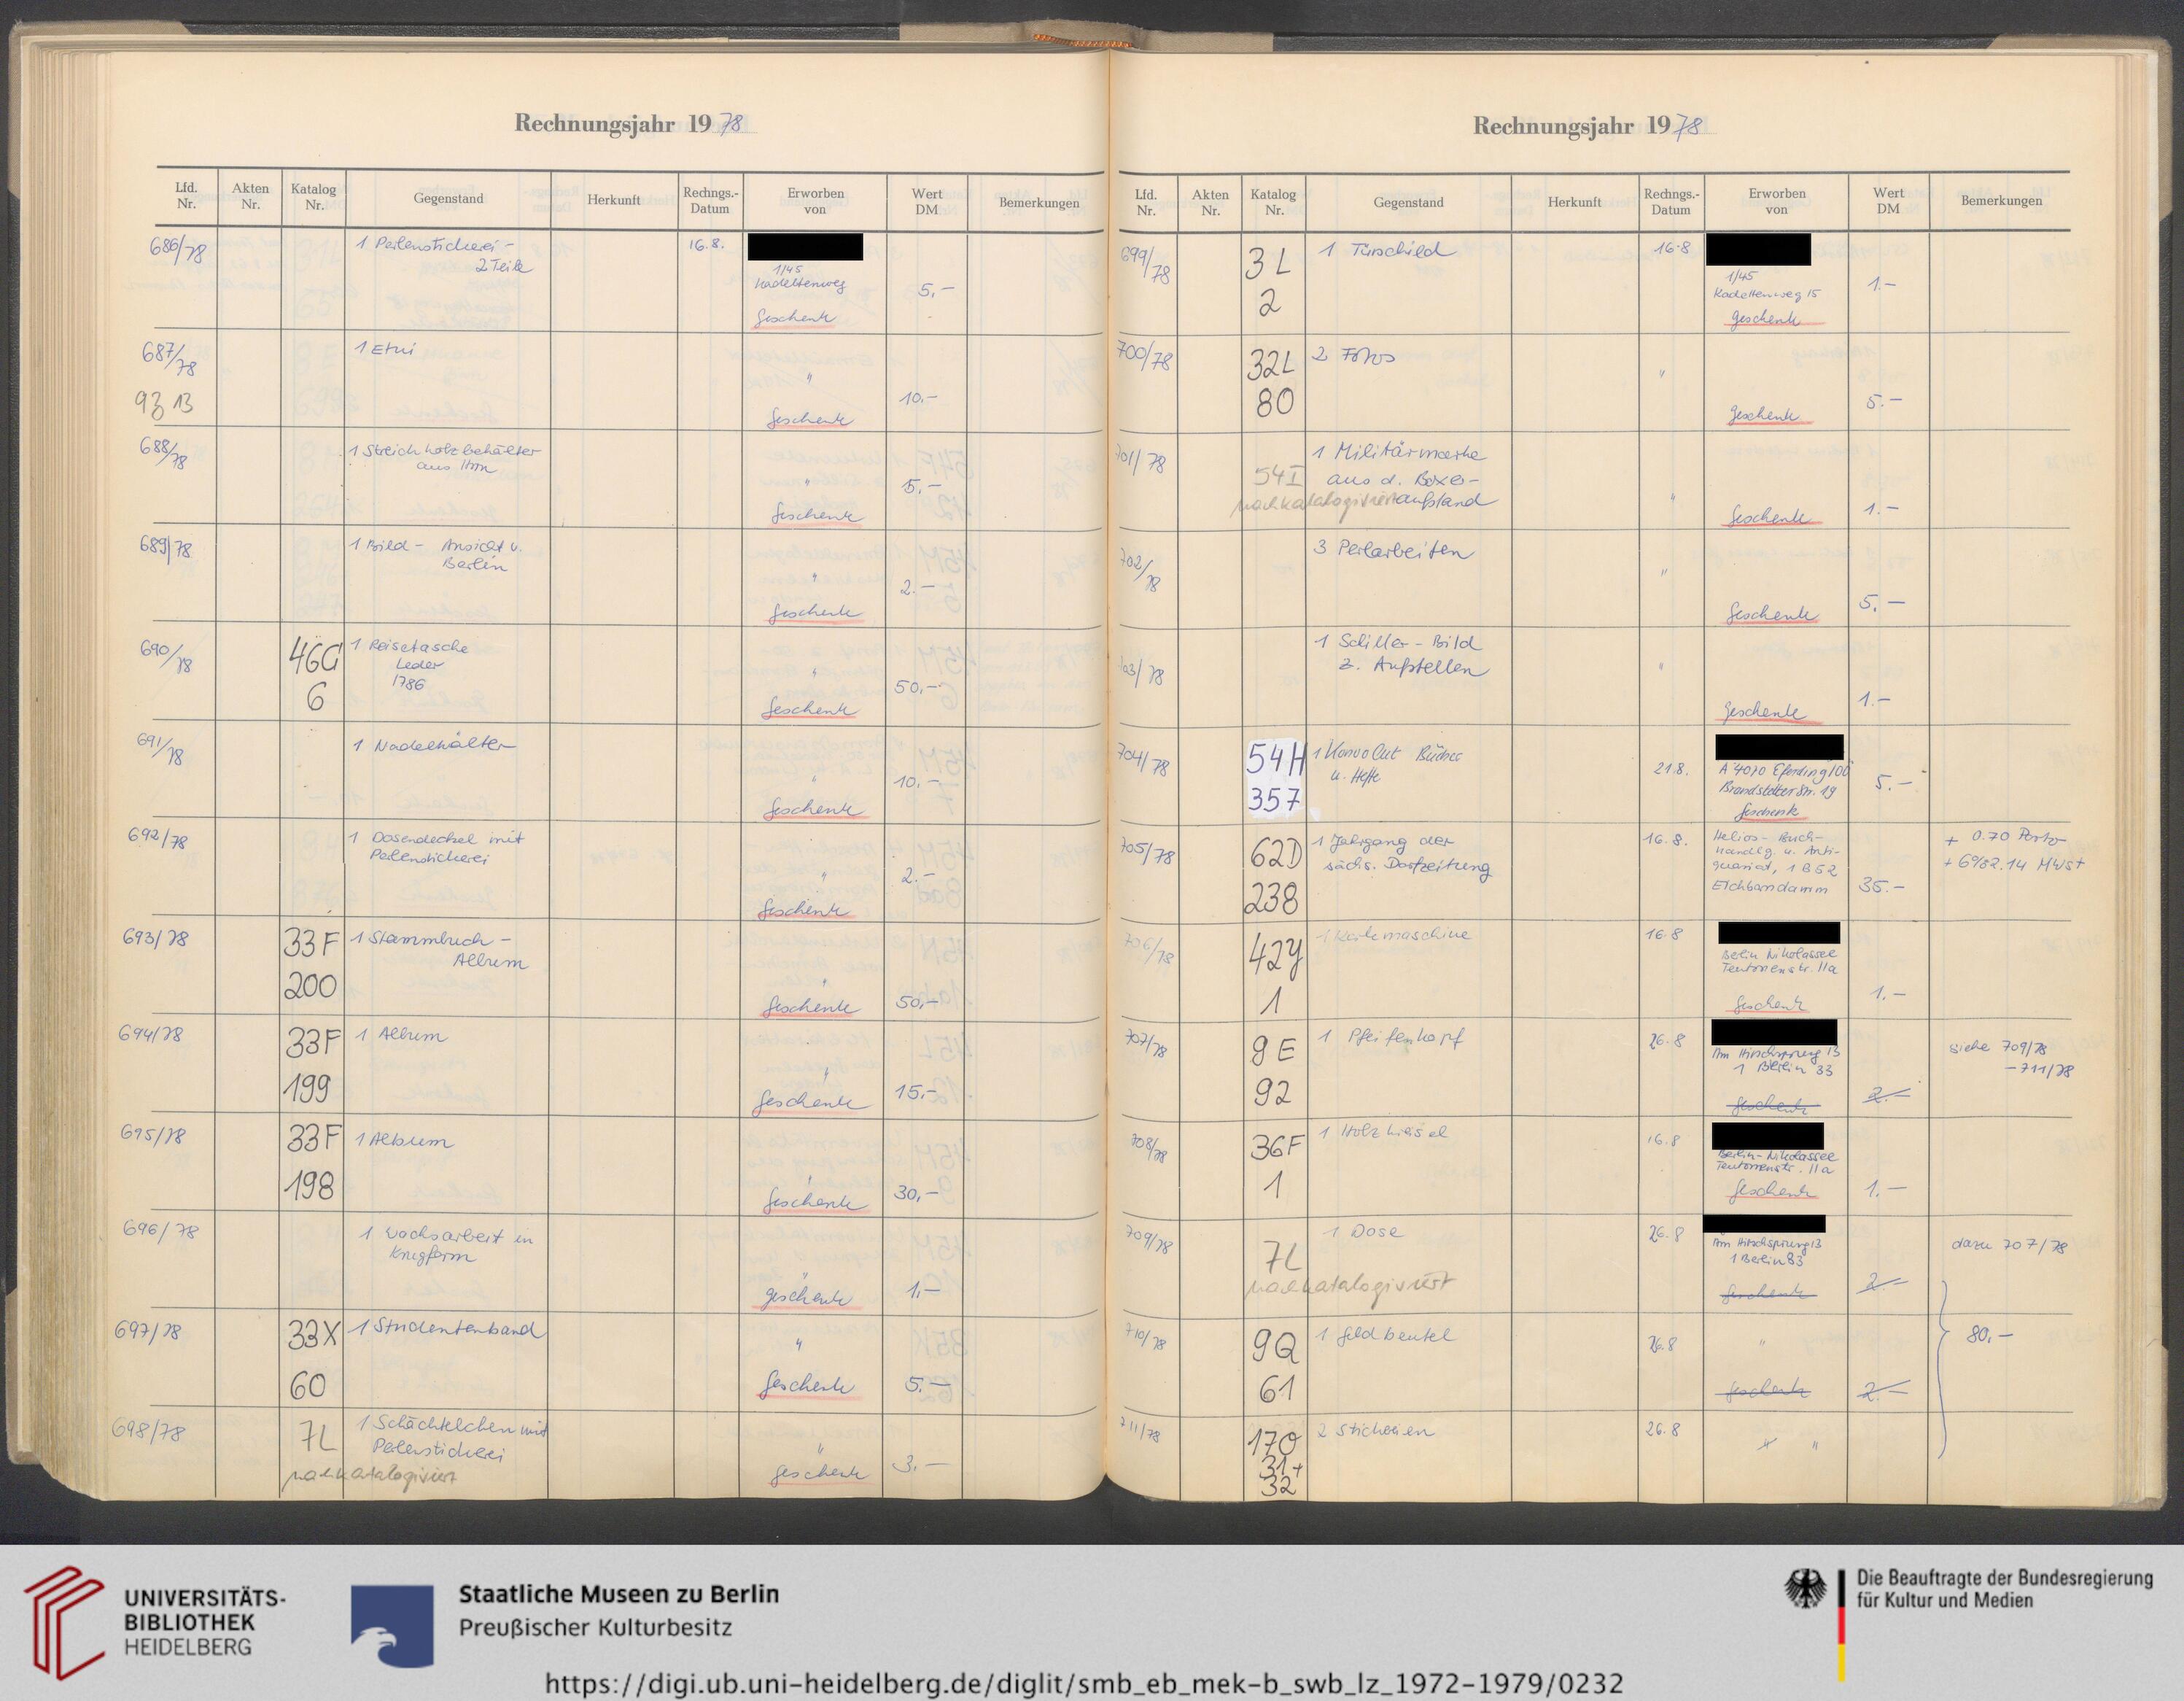 Rechnungsjahr 1978
Lfd. Nr.
Akten Nr.
Katalog Nr.
Gegenstand
Herkunft
Rechngs.-Datum
Erworben von
Wert DM
Bemerkungen
686/78 1 Perlenstickerei - 16.8.
2 Teile
1/45
Kadettenweg 5,-
Geschenk
687/78 1 Etui "
93 B 10.-
Geschenk
688/78 1 Streichholzbehälter
aus Horn " 5.-
Geschenk
689/78 1 Bild - Ansicht v.
Berlin " 2.-
Geschenk
690/78 46G 1 Reisetasche
Leder "
6 1786 50,-
Geschenk
691/78 1 Nadelhalter
" 10.-
Geschenk
692/78 1 Dosendeckel mit
Perlenstickerei
" 2.-
Geschenk
693/78 33F 1 Stammbuch -
Album
200 "
Geschenk 50,-
694/78 33F 1 Album
199 "
Geschenk 15.-
695/78 33F 1 Album
198 "
Geschenk 30,-
696/78 1 Wachsarbeit in
Krugform
"
Geschenk 1,-
697/78 33X 1 Studentenband "
60 Geschenk 5.-
698/78 7L 1 Schächtelchen mit
Perlenstickerei "
nachkatalogisiert Geschenk 3.-
Rechnungsjahr 1978
Lfd. Nr.
Akten Nr.
Katalog Nr.
Gegenstand
Herkunft
Rechngs.-Datum
Erworben von
Wert DM
Bemerkungen
699/78 3L 1 Türschild 16.8
2 1/45
Kadettenweg 15 1.-
Geschenk
700/78 32L 2 Fotos "
80 5.-
Geschenk
701/78 1 Militärmarke
54I aus d. Boxer-
nachkatalogisiert aufstand "
Geschenk 1.-
702/78 3 Perlarbeiten
"
Geschenk 5.-
703/78 1 Schiller - Bild
z. Aufstellen "
Geschenk 1.-
704/78 54H 1 Konvolut Bücher
u. Hefte 21.8. A 4070 Eferding 100 5.-
357 Brandstätter Str. 19
Geschenk
705/78 62D 1 Jahrgang der 16.8. Helios - Buch- + 0.70 Porto
sächs. Dorfzeitung handlg u. Anti- + 6% 2.14 MWSt
238 quariat, 1 B 52
Eichborndamm 35.-
706/78 42Y 16.8
Berlin Nikolassee
Teutonenstr. 11a
1 Geschenk 1.-
707/78 9E 1 Pfeifenkopf 26.8
Am Hirschsprung 13 siehe 709/78
1 Berlin 33 - 711/78
92 Geschenk 2.-
708/78 36F 16.8
Berlin - Nikolassee
Teutonenstr. 11a
1 Geschenk 1.-
709/78 1 Dose 26.8
7L Am Hirschsprung 13 dazu 707/78
1 Berlin 33
nachkatalogisiert Geschenk 2.-
710/78 9Q 1 Geldbeutel 26.8 " 80,-
61 Geschenk 2.-
711/78 170 2 Stickereien 26.8 "
31+
32
UNIVERSITÄTS-
BIBLIOTHEK
HEIDELBERG
Staatliche Museen zu Berlin
Preußischer Kulturbesitz
Die Beauftragte der Bundesregierung
für Kultur und Medien
https://digi.ub.uni-heidelberg.de/diglit/smb_eb_mek-b_swb_lz_1972-1979/0232